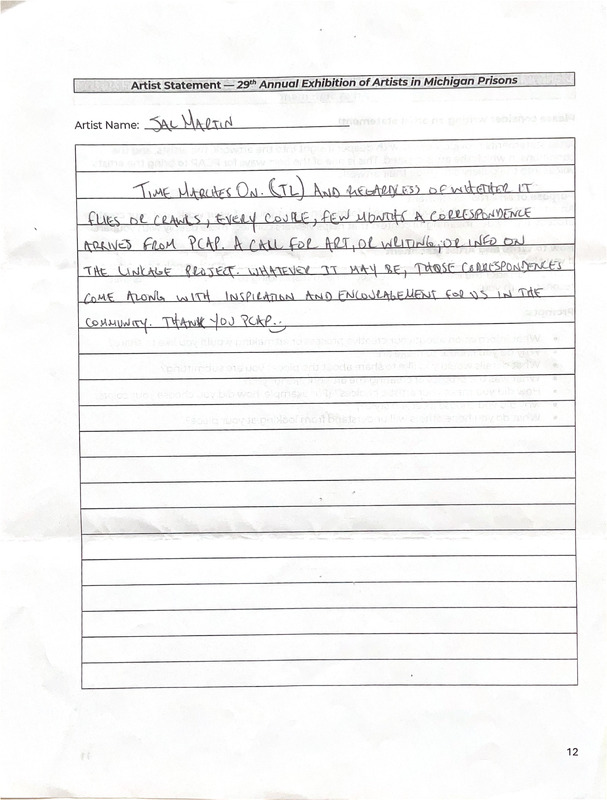 Artist Statement — 29th Annual Exhibition of Artists in Michigan Prisons
Artist Name: JAL MARTIN
TIME MARCHES ON. (TL) AND REGARDLESS OF WHETHER IT
FLIES OR CRAWLS, EVERY COUPLE, FEW MONTHS A CORRESPONDENCE
ARRIVES FROM PCAP. A CALL FOR ART, OR WRITING, OR INFO ON
THE LINKAGE PROJECT. WHATEVER IT MAY BE, THOSE CORRESPONDENCES
COME ALONG WITH INSPIRATION AND ENCOURAGEMENT FOR US IN THE
COMMUNITY. THANK YOU PCAP..
12